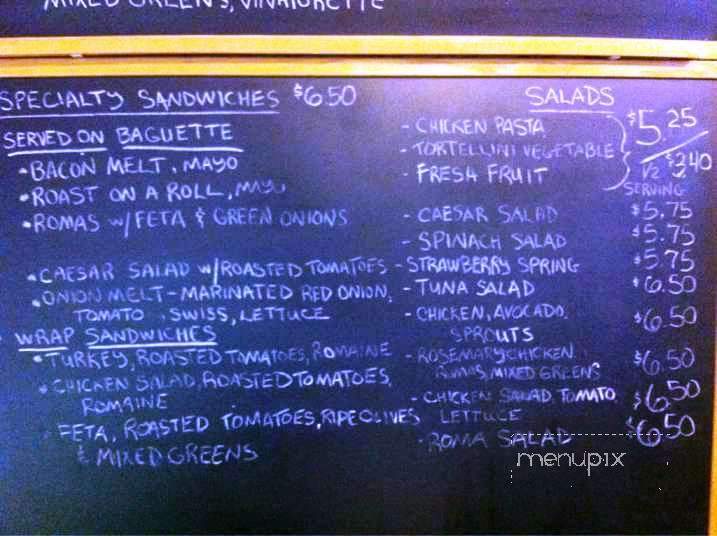 MIXED GREENS, VINAIGRETTE
SPECIALTY SANDWICHES $6.50
SERVED ON BAGUETTE
• BACON MELT, MAYO
• ROAST ON A ROLL, MAYO
• ROMAS W/FETA & GREEN ONIONS
• CAESAR SALAD W/ROASTED TOMATOES
• ONION MELT - MARINATED RED ONION,
TOMATO, SWISS, LETTUCE
WRAP SANDWICHES
• TURKEY, ROASTED TOMATOES, ROMAINE
• CHICKEN SALAD, ROASTED TOMATOES,
ROMAINE
FETA, ROASTED TOMATOES, RIPE OLIVES
& MIXED GREENS
SALADS
- CHICKEN PASTA
- TORTELLINI VEGETABLE
- FRESH FRUIT
$5.25
1/2 SERVING $3.40
- CAESAR SALAD $5.75
- SPINACH SALAD $5.75
- STRAWBERRY SPRING $5.75
- TUNA SALAD $6.50
- CHICKEN, AVOCADO,
SPROUTS $6.50
- ROSEMARY CHICKEN
ROMAS, MIXED GREENS $6.50
- CHICKEN SALAD, TOMATO,
LETTUCE $6.50
- ROMA SALAD $6.50
menupix